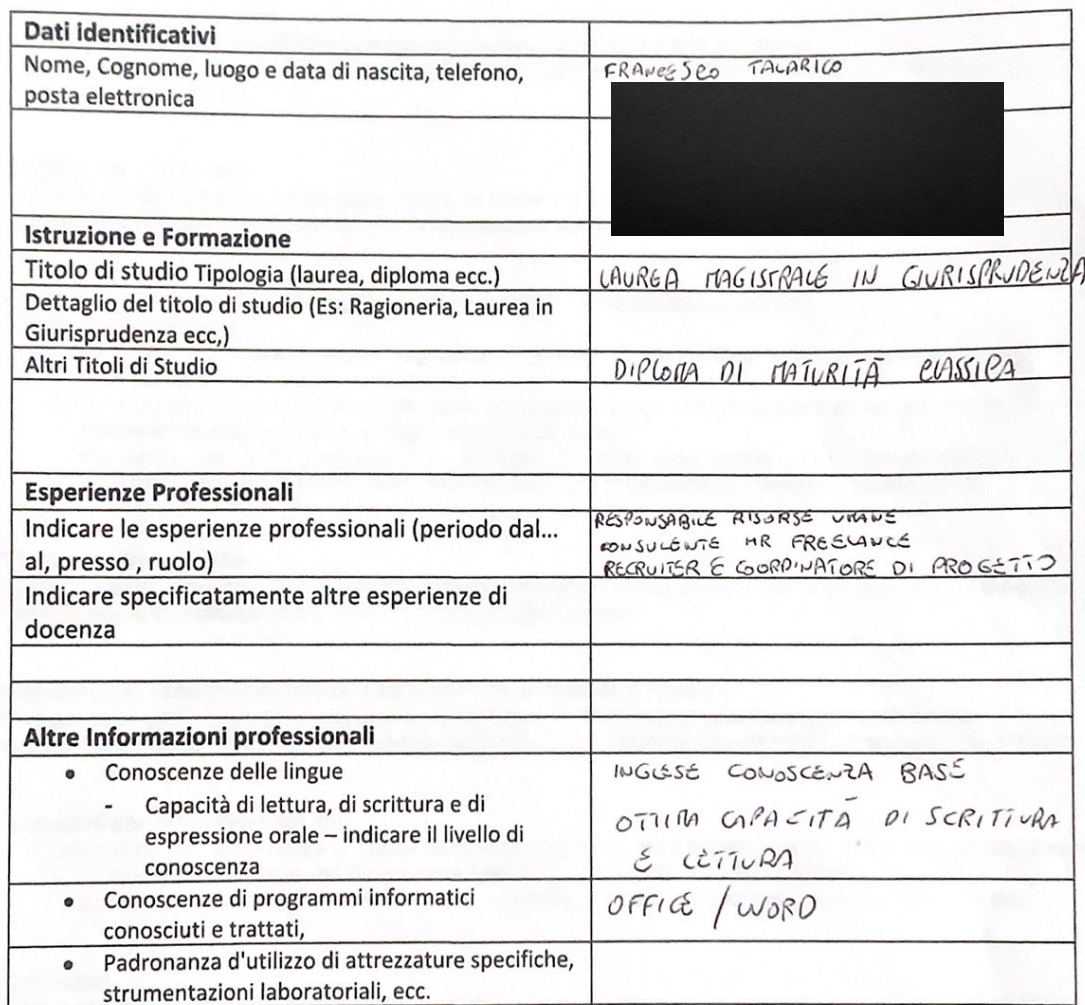 Dati identificativi
Nome, Cognome, luogo e data di nascita, telefono,
posta elettronica
FRANCESCO TALARICO
Istruzione e Formazione
Titolo di studio Tipologia (laurea, diploma ecc.)
LAUREA MAGISTRALE IN GIURISPRUDENZA
Dettaglio del titolo di studio (Es: Ragioneria, Laurea in
Giurisprudenza ecc,)
Altri Titoli di Studio
DIPLOMA DI MATURITÀ CLASSICA
Esperienze Professionali
Indicare le esperienze professionali (periodo dal...
al, presso , ruolo)
RESPONSABILE RISORSE UMANE
CONSULENTE HR FREELANCE
RECRUITER E COORDINATORE DI PROGETTO
Indicare specificatamente altre esperienze di
docenza
Altre Informazioni professionali
• Conoscenze delle lingue
- Capacità di lettura, di scrittura e di
espressione orale – indicare il livello di
conoscenza
INGLESE CONOSCENZA BASE
OTTIMA CAPACITÀ DI SCRITTURA
E LETTURA
• Conoscenze di programmi informatici
conosciuti e trattati,
OFFICE / WORD
• Padronanza d'utilizzo di attrezzature specifiche,
strumentazioni laboratoriali, ecc.